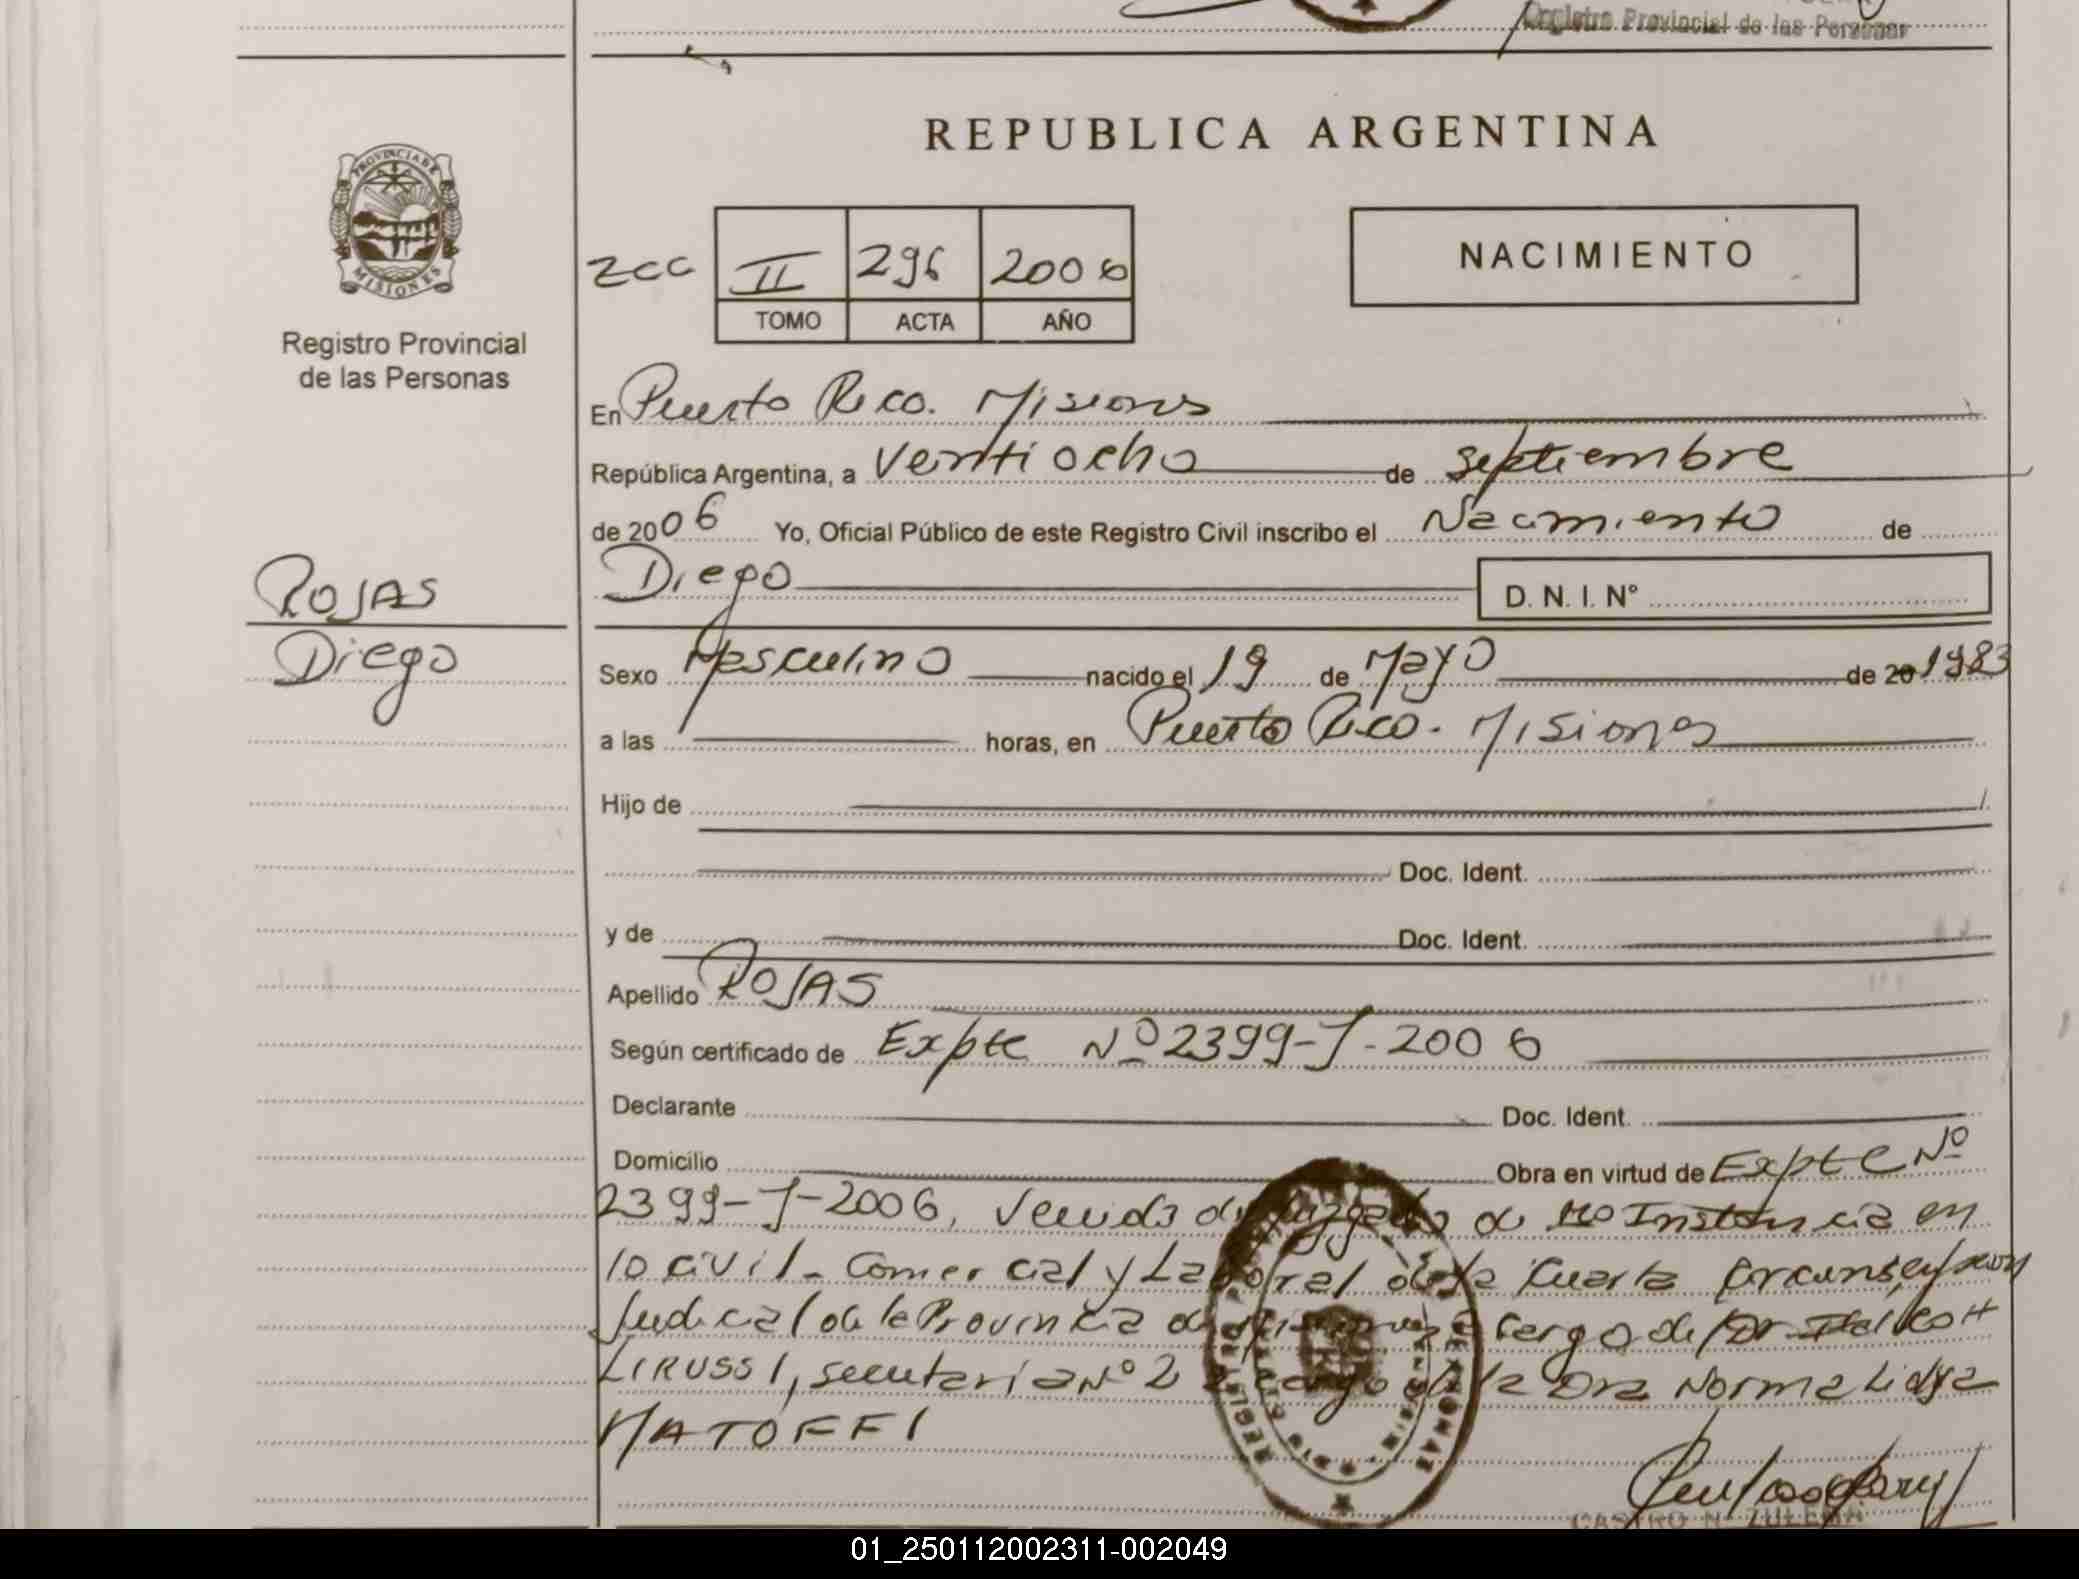 Registro Provincial de las Personas
REPUBLICA ARGENTINA
PROVINCIA DE
MISIONES
Registro Provincial
de las Personas
ROJAS
Diego
zcc II 296 2006
TOMO ACTA AÑO
NACIMIENTO
En Puerto Rico. Misiones
República Argentina, a Ventiocho de septiembre
de 2006 Yo, Oficial Público de este Registro Civil inscribo el Nacimiento de
Diego D. N. I. N°
Sexo Masculino nacido el 19 de Mayo de 20 1983
a las horas, en Puerto Rico. Misiones
Hijo de
Doc. Ident.
y de Doc. Ident.
Apellido ROJAS
Según certificado de Expte Nº 2399-J-2006
Declarante Doc. Ident.
Domicilio Obra en virtud de Expte Nº
2399-J-2006, Venido del Juzgado de Instancia en
lo civil. Comercial y Laboral de la Cuarta
Judicial de la Provincia de Misiones a cargo de Dr.
LIRUSSI, secretaria Nº 2 a cargo de la Dra Norma Lidya
MATOFFI
CASTRO N. ZULEMA
01_250112002311-002049